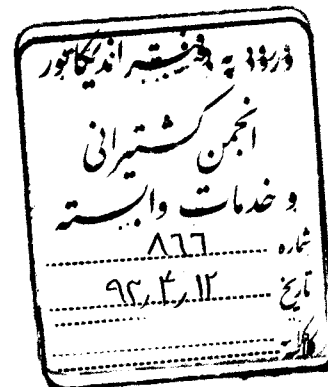 ورود به دفتر اندیکاتور
انجمن کشتیرانی
و خدمات وابسته
شماره ۸۶۶
تاریخ ۹۲٫۴٫۱۲